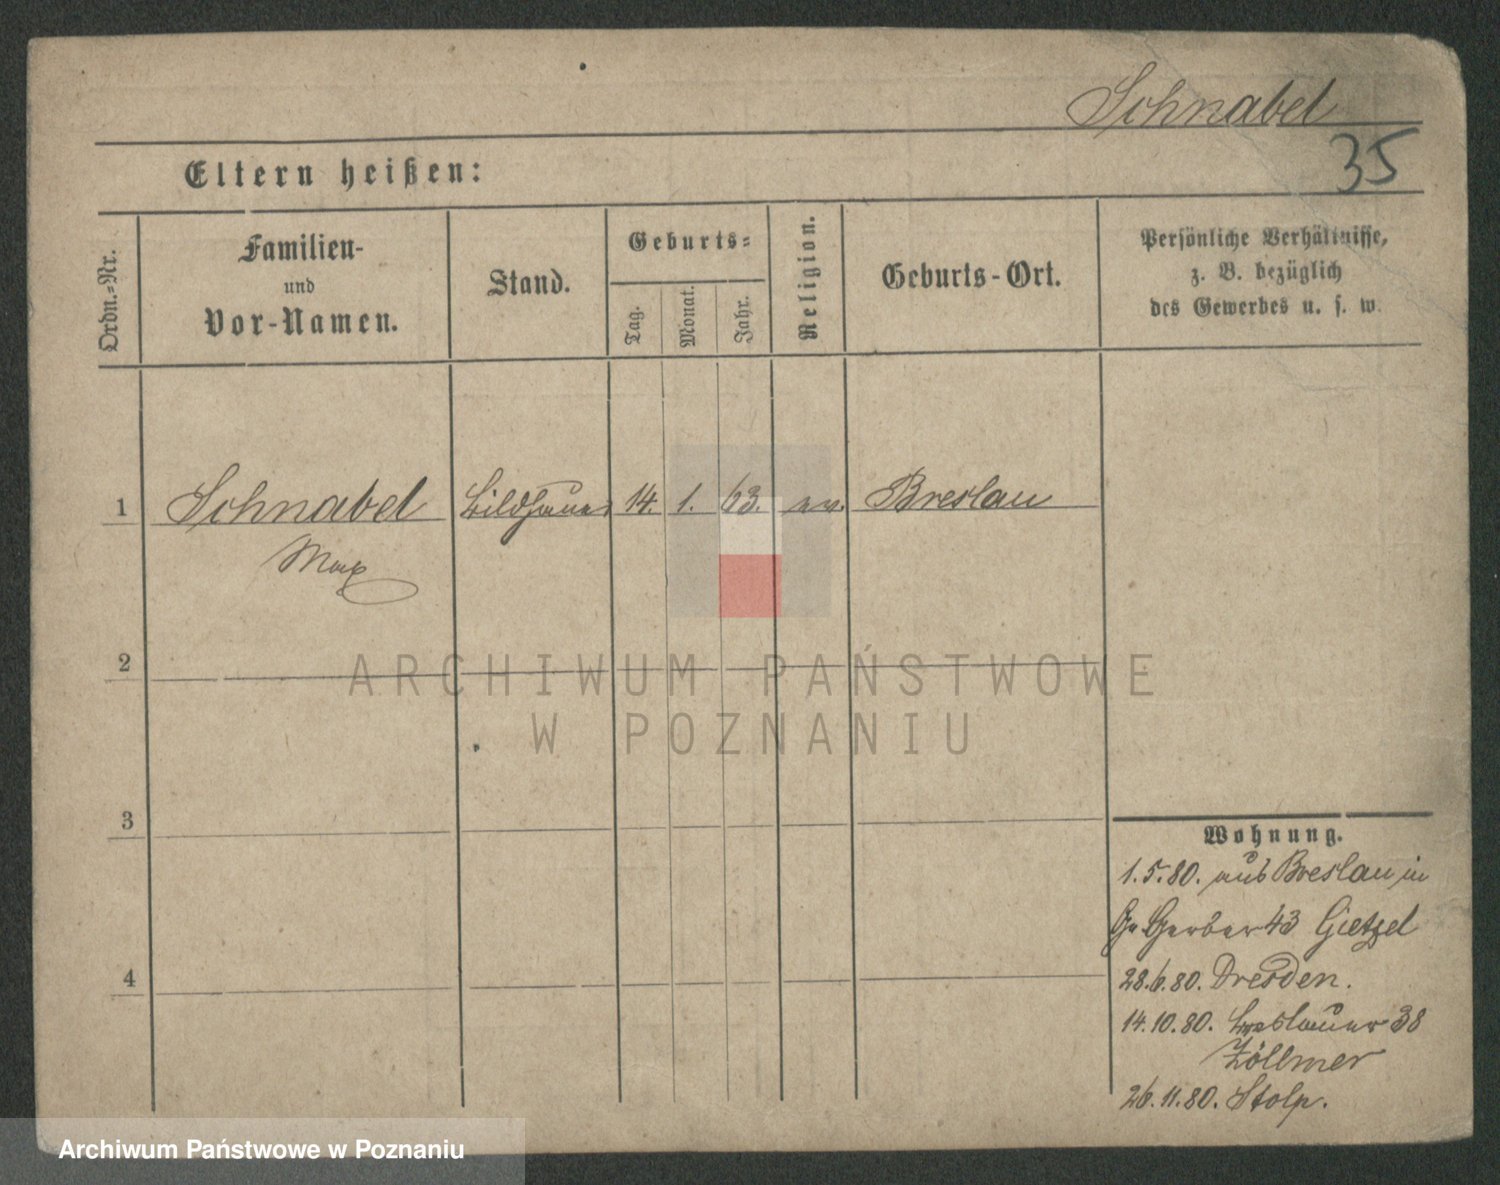 Schnabel
35
Eltern heißen:
Ordn.-Nr.
Familien-
und
Vor-Namen.
Stand.
Geburts-
Tag.
Monat.
Jahr.
Religion.
Geburts-Ort.
Persönliche Verhältnisse,
z. B. bezüglich
des Gewerbes u. s. w.
1 Schnabel Bildhauer 14. 1. 63. ev. Breslau
Max
2
3
4
Wohnung.
1.5.80. aus Breslau in
Gr Gerber 43 Gietzel
28.6.80. Dresden.
14.10.80. Breslauer 38
Zöllmer
26.11.80. Stolp.
ARCHIWUM PAŃSTWOWE
W POZNANIU
Archiwum Państwowe w Poznaniu